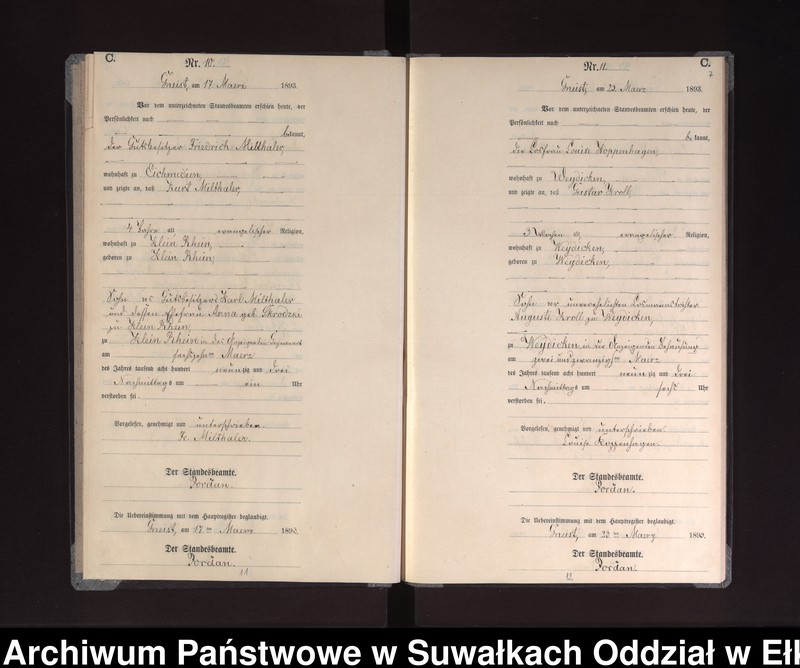 C.
Nr. 10.
Gneist, am 17 Maerz 1893.
Vor dem unterzeichneten Standesbeamten erschien heute, der
Persönlichkeit nach
bekannt,
der Gutsbesitzer Friedrich Milthaler,
wohnhaft zu Eichmedien,
und zeigte an, daß Kurt Milthaler,
4 Jahre alt, evangelischer Religion,
wohnhaft zu Klein Rhein,
geboren zu Klein Rhein,
Sohn des Gutsbesitzers Karl Milthaler
und dessen Ehefrau Anna geb. Skrodzki
zu Klein Rhein,
zu Klein Rhein in des Anzeigenden Gegenwart
am sechszehnten Maerz
des Jahres tausend acht hundert neunzig und drei
Nachmittags um ein Uhr
verstorben sei.
Vorgelesen, genehmigt und unterschrieben.
Fr. Milthaler.
Der Standesbeamte.
Jordan.
Die Uebereinstimmung mit dem Hauptregister beglaubigt.
Gneist, am 17ten Maerz 1893.
Der Standesbeamte.
Jordan.
11
C.
7
Nr. 11.
Gneist, am 23. Maerz 1893.
Vor dem unterzeichneten Standesbeamten erschien heute, der
Persönlichkeit nach
bekannt,
die Losfrau Louise Koppenhagen,
wohnhaft zu Weydicken,
und zeigte an, daß Gustav Kroll,
3 Wochen alt, evangelischer Religion,
wohnhaft zu Weydicken,
geboren zu Weydicken,
Sohn der unverehelichten Losmannstochter
Auguste Kroll zu Weydicken,
zu Weydicken in der Anzeigenden Behausung
am zwei und zwanzigsten Maerz
des Jahres tausend acht hundert neunzig und drei
Nachmittags um sechs Uhr
verstorben sei.
Vorgelesen, genehmigt und unterschrieben.
Louise Koppenhagen.
Der Standesbeamte.
Jordan.
Die Uebereinstimmung mit dem Hauptregister beglaubigt.
Gneist, am 23ten Maerz 1893.
Der Standesbeamte.
Jordan.
12
Archiwum Państwowe w Suwałkach Oddział w Eł